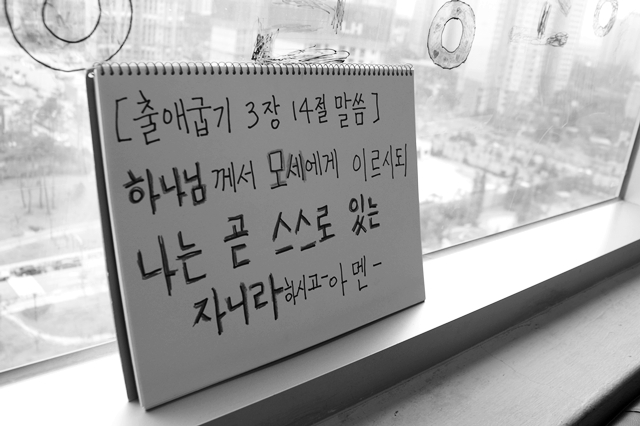 [출애굽기 3장 14절 말씀]
하나님께서 모세에게 이르시되
나는 곧 스스로 있는
자니라 하시고-아멘-